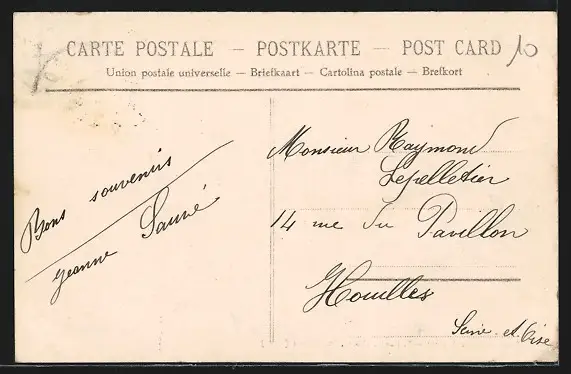 CARTE POSTALE — POSTKARTE — POST CARD
10
Union postale universelle — Briefkaart — Cartolina postale — Brefkort
Bons souvenirs
Jeanne Sauvé
Monsieur Raymond
Lepelletier
14 rue du Pavillon
Houilles
Seine-et-Oise